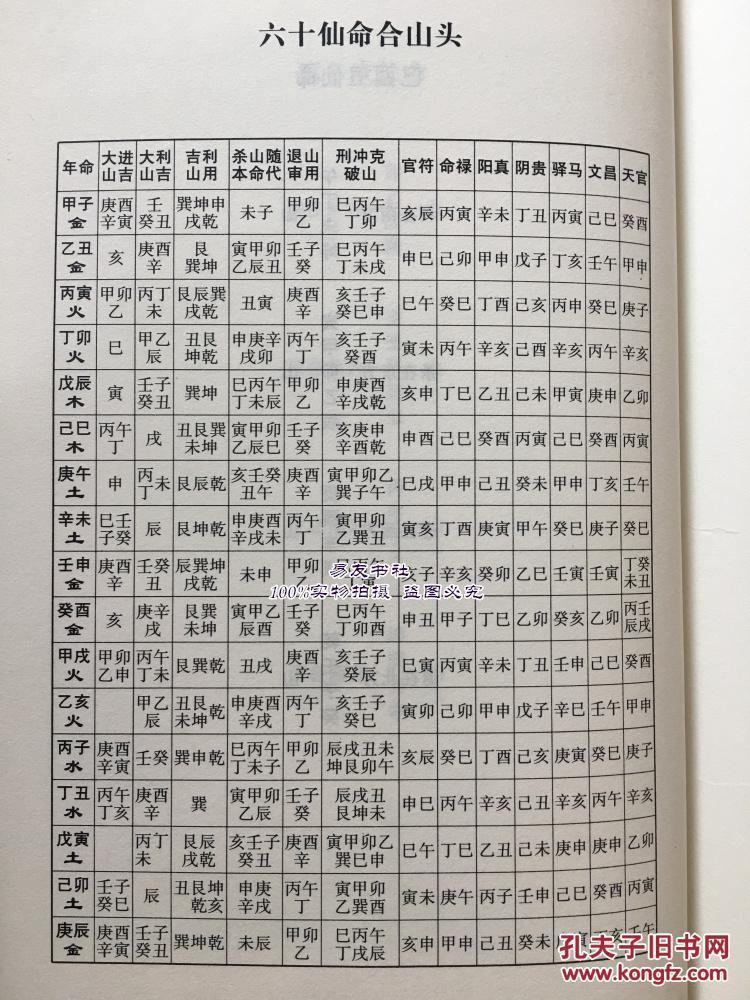 六十仙命合山头
年命 大进山吉 大利山吉 吉利山用 杀山随本命代 退山审用 刑冲克破山 官符 命禄 阳真 阴贵 驿马 文昌 天官
甲子金 庚酉辛寅 壬癸丑 巽坤申戌乾 未子 甲卯乙 巳丙午丁卯 亥辰 丙寅 辛未 丁丑 丙寅 己巳 癸酉
乙丑金 亥 庚酉辛 艮巽坤 寅甲卯乙辰丑 壬子癸 巳丙午丁未戌 申巳 己卯 甲申 戊子 丁亥 壬午 甲申
丙寅火 甲卯乙 丙丁未 艮辰巽戌乾 丑寅 庚酉辛 亥壬子癸巳申 巳午 癸巳 丁酉 己亥 丙申 癸巳 庚子
丁卯火 巳 甲乙辰 丑艮坤乾 申庚辛戌卯 丙午丁 亥壬子癸酉 寅未 丙午 辛亥 己酉 辛亥 丙午 辛亥
戊辰木 寅 壬子癸丑 巽坤 巳丙午丁未辰 甲卯乙 申庚酉辛戌乾 亥申 丁巳 乙丑 己未 甲寅 庚申 乙卯
己巳木 丙午丁 戌 丑艮巽未坤 寅甲卯乙辰巳 壬子癸 亥庚申辛酉乾 申酉 己巳 癸酉 丙寅 己巳 癸酉 丙寅
庚午土 申 丙未丁 艮辰乾 亥壬癸丑午 庚酉辛 寅甲卯乙巽子午 巳戌 甲申 己丑 癸未 甲申 丁亥 壬午
辛未土 巳壬子癸 辰 艮坤乾 申庚酉辛戌未 丙午丁 寅甲卯乙巽丑 寅亥 丁酉 庚寅 甲午 癸巳 庚子 癸巳
壬申金 庚酉辛 壬癸丑 辰巽坤戌乾 未申 甲卯乙 巳丙午丁寅 亥子 辛亥 癸卯 乙巳 壬寅 壬寅 丁癸未丑
癸酉金 亥 庚辛戌 艮巽未坤 寅甲乙辰酉 壬子癸 巳丙午丁卯酉 申丑 甲子 丁巳 乙卯 癸亥 乙卯 丙壬辰戌
甲戌火 甲卯乙申 丙午丁未 艮巽乾 丑戌 庚酉辛 亥壬子癸辰 巳寅 丙寅 辛未 丁丑 壬申 己巳 癸酉
乙亥火 甲乙辰 丑艮未坤乾 申庚酉辛戌 丙午丁 亥壬子癸巳 寅卯 己卯 甲申 戊子 辛巳 壬午 甲申
丙子水 庚酉辛寅 壬癸 巽申乾 巳丙午丁未子 甲卯乙 辰戌丑未坤艮卯午 亥辰 癸巳 丁酉 己亥 庚寅 癸巳 庚子
丁丑水 丙午丁亥 庚酉辛 巽 寅甲卯乙辰 壬子癸 辰戌丑艮坤未 申巳 丙午 辛亥 己丑 辛亥 丙午 辛亥
戊寅土 丙丁未 艮辰戌乾 亥壬子癸丑 庚酉辛 寅甲卯乙巽巳申 巳午 丁巳 乙丑 己未 庚申 庚申 乙卯
己卯土 壬子癸巳 辰 丑艮坤乾亥 申庚辛戌 丙午丁 寅甲卯乙巽酉 寅未 庚午 丙子 壬申 己巳 癸酉 丙寅
庚辰金 庚酉辛寅 壬子癸丑 巽坤乾 未辰 甲卯乙 巳丙午丁戌辰 亥申 甲申 己丑 癸未 亥 壬午
易友书社
100%实物拍摄 盗图必究
孔夫子旧书网
www.kongfz.com